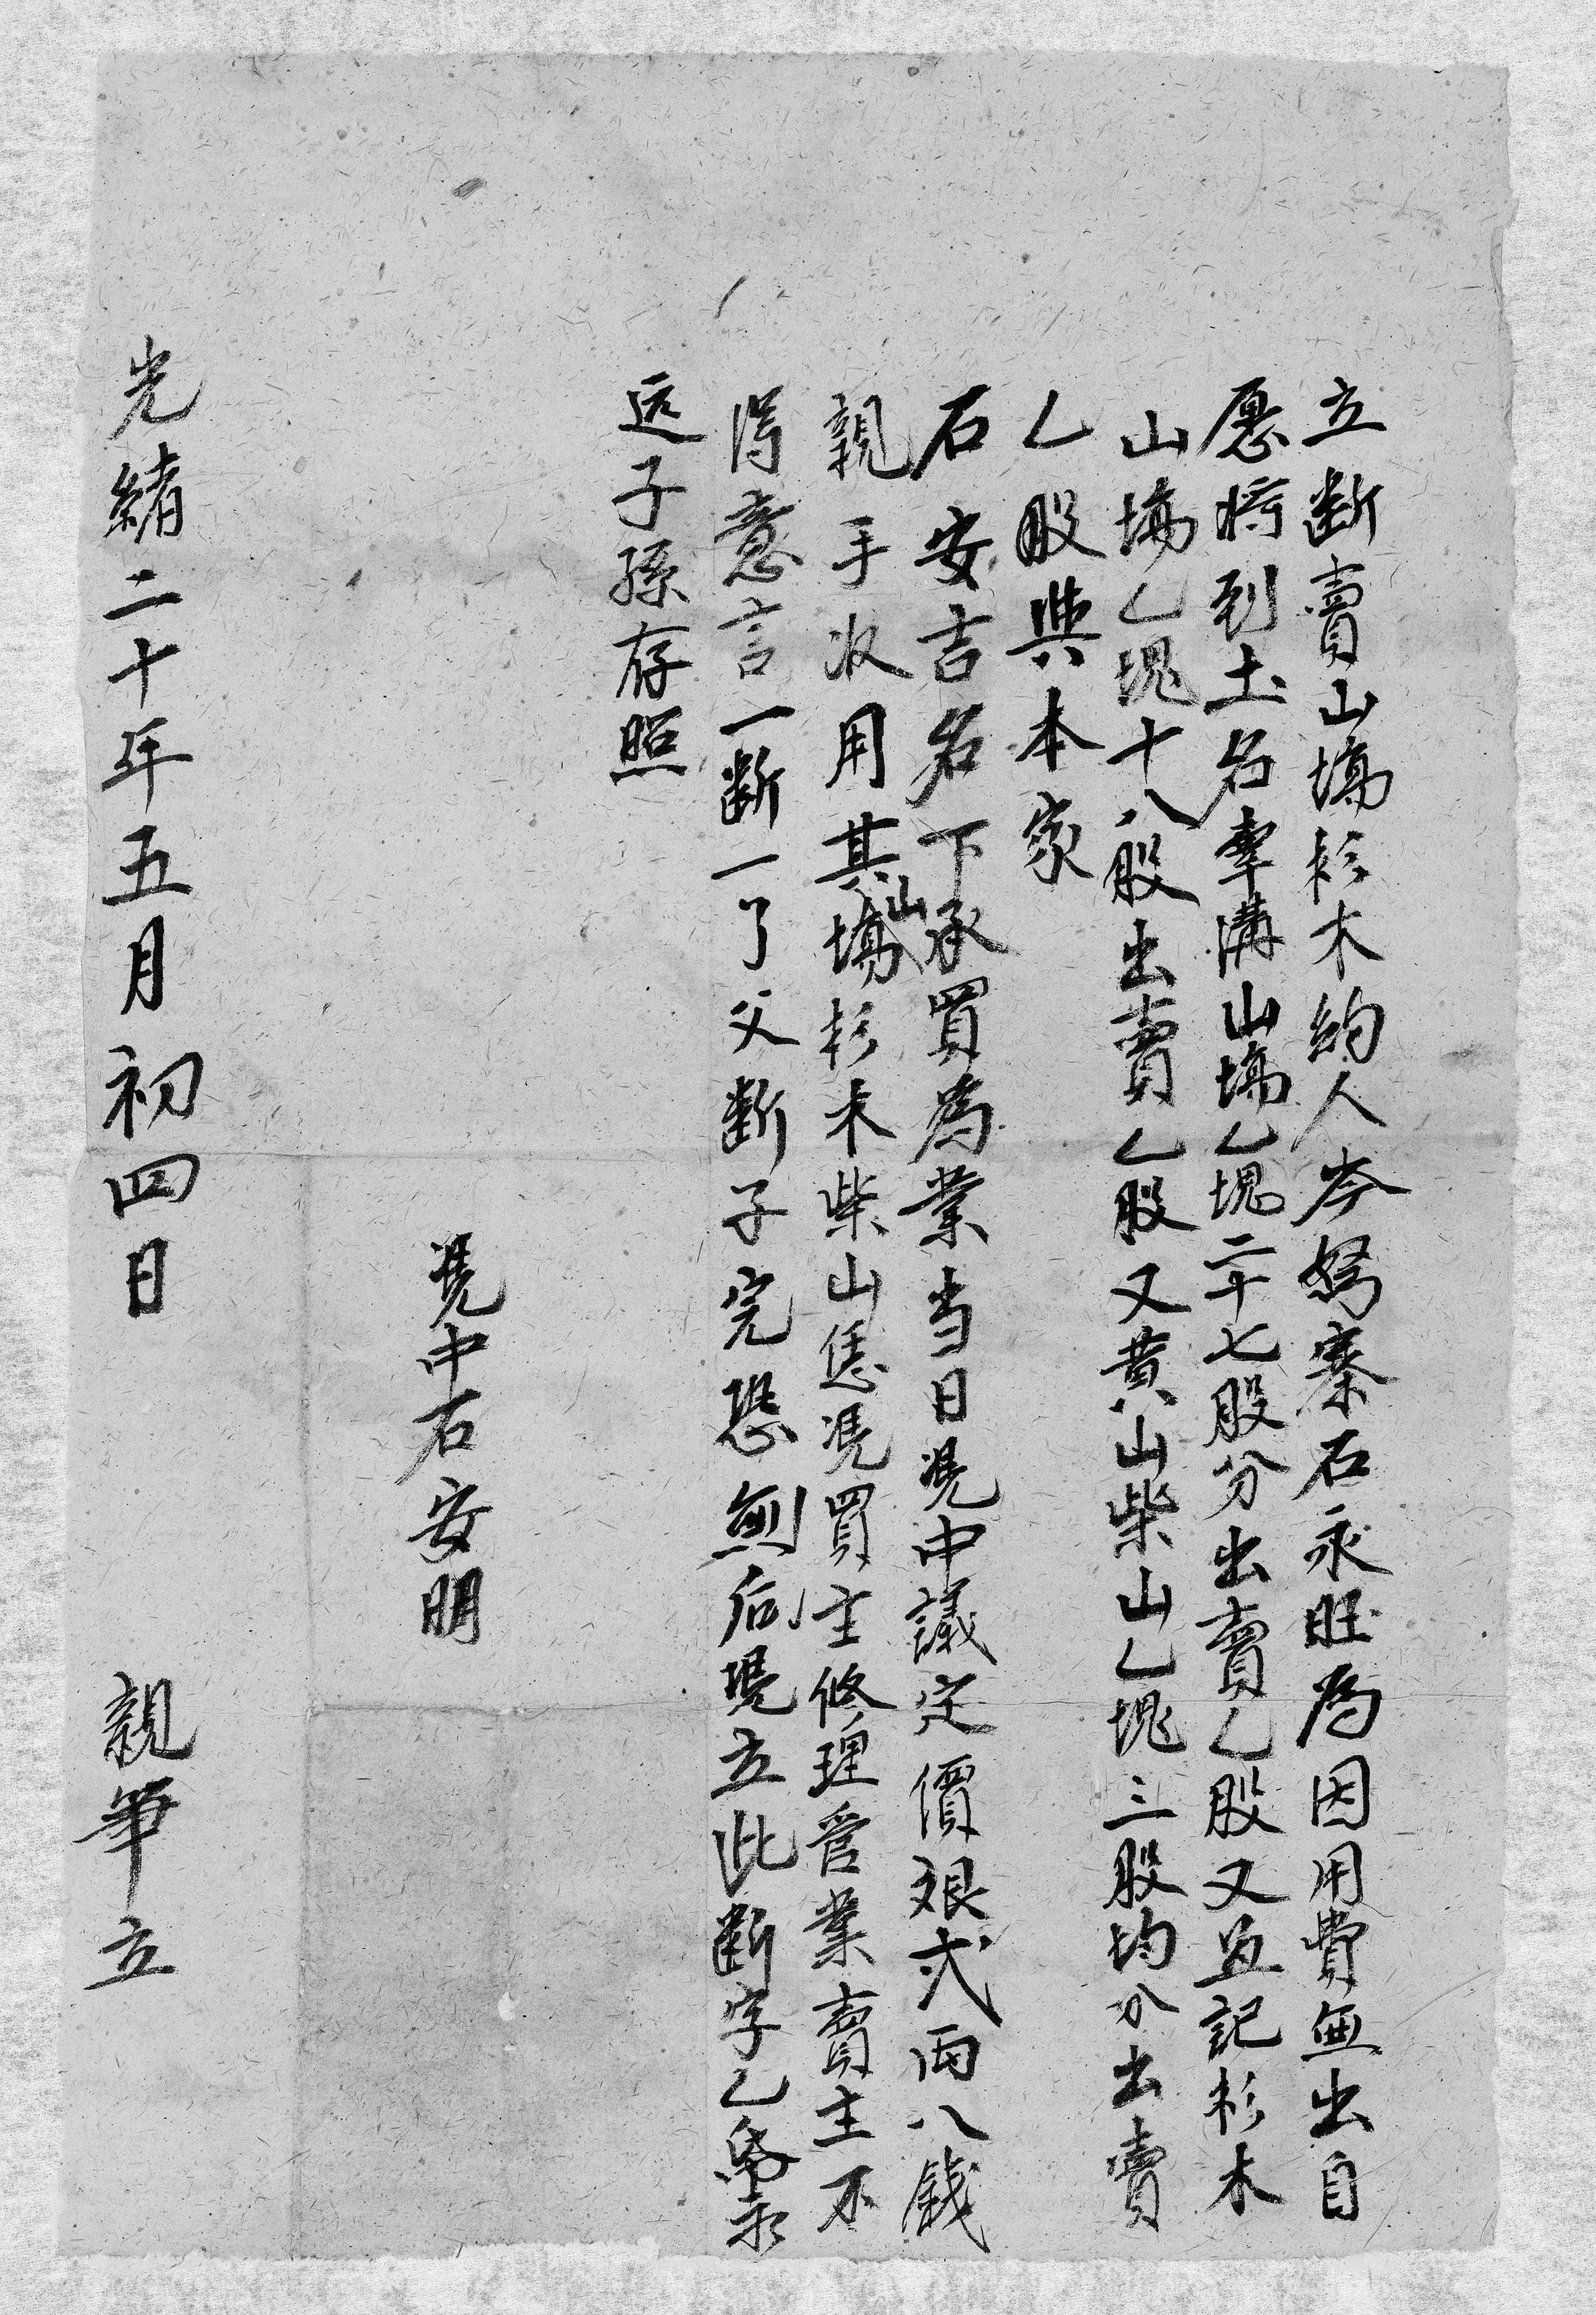 立断賣山塲杉木約人岑努寨石永旺為因用費無出自
愿將到土名牽溝山塲乙塊二十七股分出賣乙股又並記杉木
山塲乙塊十八股出賣乙股又黄山柴山乙塊三股均分出賣
乙股與本家
石安吉名下承買為業当日凴中議定價艮弍両八錢
親手收用其山塲杉木柴山恁凴買主修理管業賣主不
得意言一断一了父断子完恐無后凴立此断字乙帋永
远子孫存照
凴中石安明
光緒二十年五月初四日 親筆立